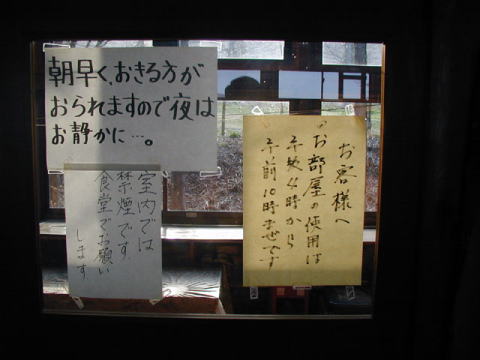 朝早くおきる方が
おられますので夜は
お静かに…。
お客様へ
お部屋の使用は
午後4時から
午前10時までです
室内では
禁煙です
食堂でお願い
します